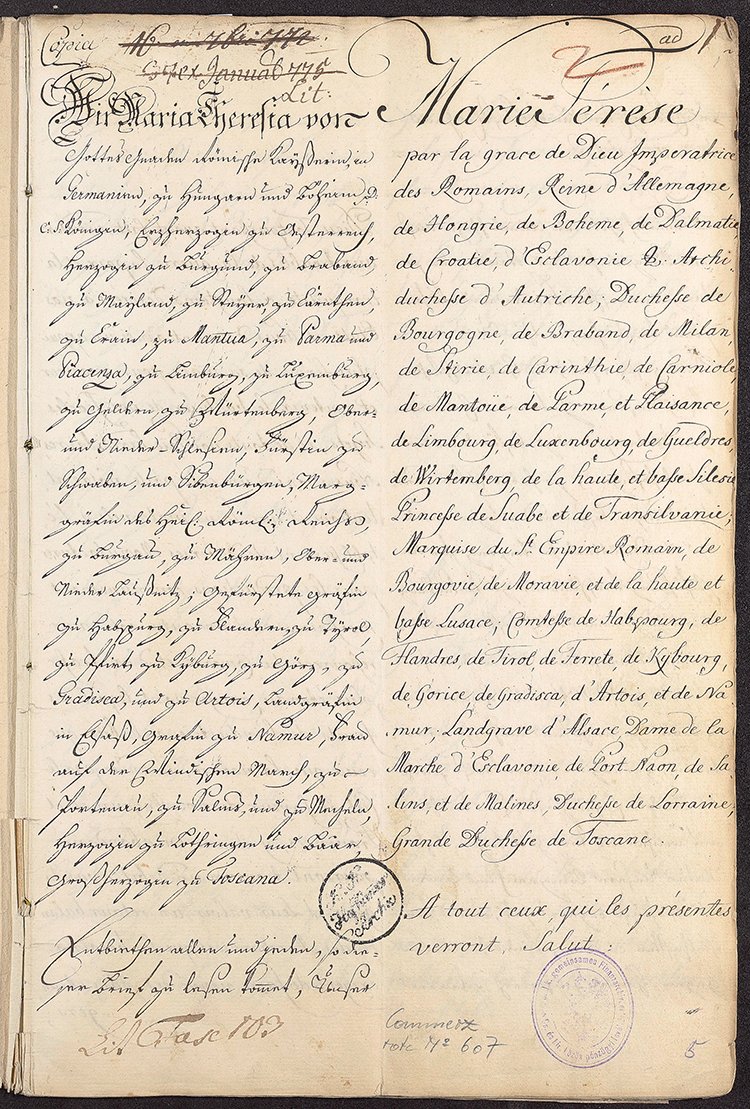 Copia
ad 1
2
16 7bri 772.
ex Januar 775
Lit:
Wir Maria Theresia von
Gottes Gnaden Römische Kayßerin, in
Germanien, zu Hungarn und Böheim,
Königin, Erzherzogin zu Oesterreich,
Herzogin zu Burgund, zu Braband,
zu Mayland, zu Steyer, zu Cärnthen,
zu Crain, zu Mantua, zu Parma und
Piacenza, zu Limburg, zu Luxemburg,
zu Geldern, zu Würtenberg, Ober-
und Nieder-Schlesien, Fürstin zu
Schwaben, und Sibenbürgen, Marg-
gräfin des Heil: Röm: Reichs,
zu Burgau, zu Mähren, Ober- und
Nieder Laußnitz; Gefürstete Gräfin
zu Habspurg, zu Flandern, zu Tyrol,
zu Pfirt, zu Kyburg, zu Görz, zu
Gradisca, und zu Artois, Landgräfin
in Elsaß, Gräfin zu Namur, Frau
auf der Windischen March, zu
Portenau, zu Salins, und zu Mecheln,
Herzogin zu Lothringen und Baar,
Großherzogin zu Toscana.
Entbiethen allen und jeden, so die-
ser Brief zu lesen kommet, Unser
Marie Térèse
par la grace de Dieu Imperatrice
des Romains, Reine d'Allemagne,
de Hongrie, de Boheme, de Dalmatie
de Croatie, d'Esclavonie &. Archi
duchesse d'Autriche; Duchesse de
Bourgogne, de Braband, de Milan,
de Stirie, de Carinthie, de Carniole,
de Mantoüe, de Parme, et Plaisance,
de Limbourg, de Luxenbourg, de Gueldres,
de Wirtemberg, de la haute, et basse Silesie
Princesse de Suabe et de Transilvanie;
Marquise du St. Empire Romain, de
Bourgovie, de Moravie, et de la haute et
basse Lusace; Comtesse de Habspourg, de
Flandres, de Tirol, de Ferrete, de Kybourg,
de Gorice, de Gradisca, d'Artois, et de Na
mur; Landgrave d'Alsace, Dame de la
Marche d'Esclavonie, de Port Naon, de Sa
lins, et de Malines, Duchesse de Lorraine,
Grande Duchesse de Toscane.
A tout ceux, qui les présentes
verront, Salut:
Fasc 103
Commerz
rote No 607
5